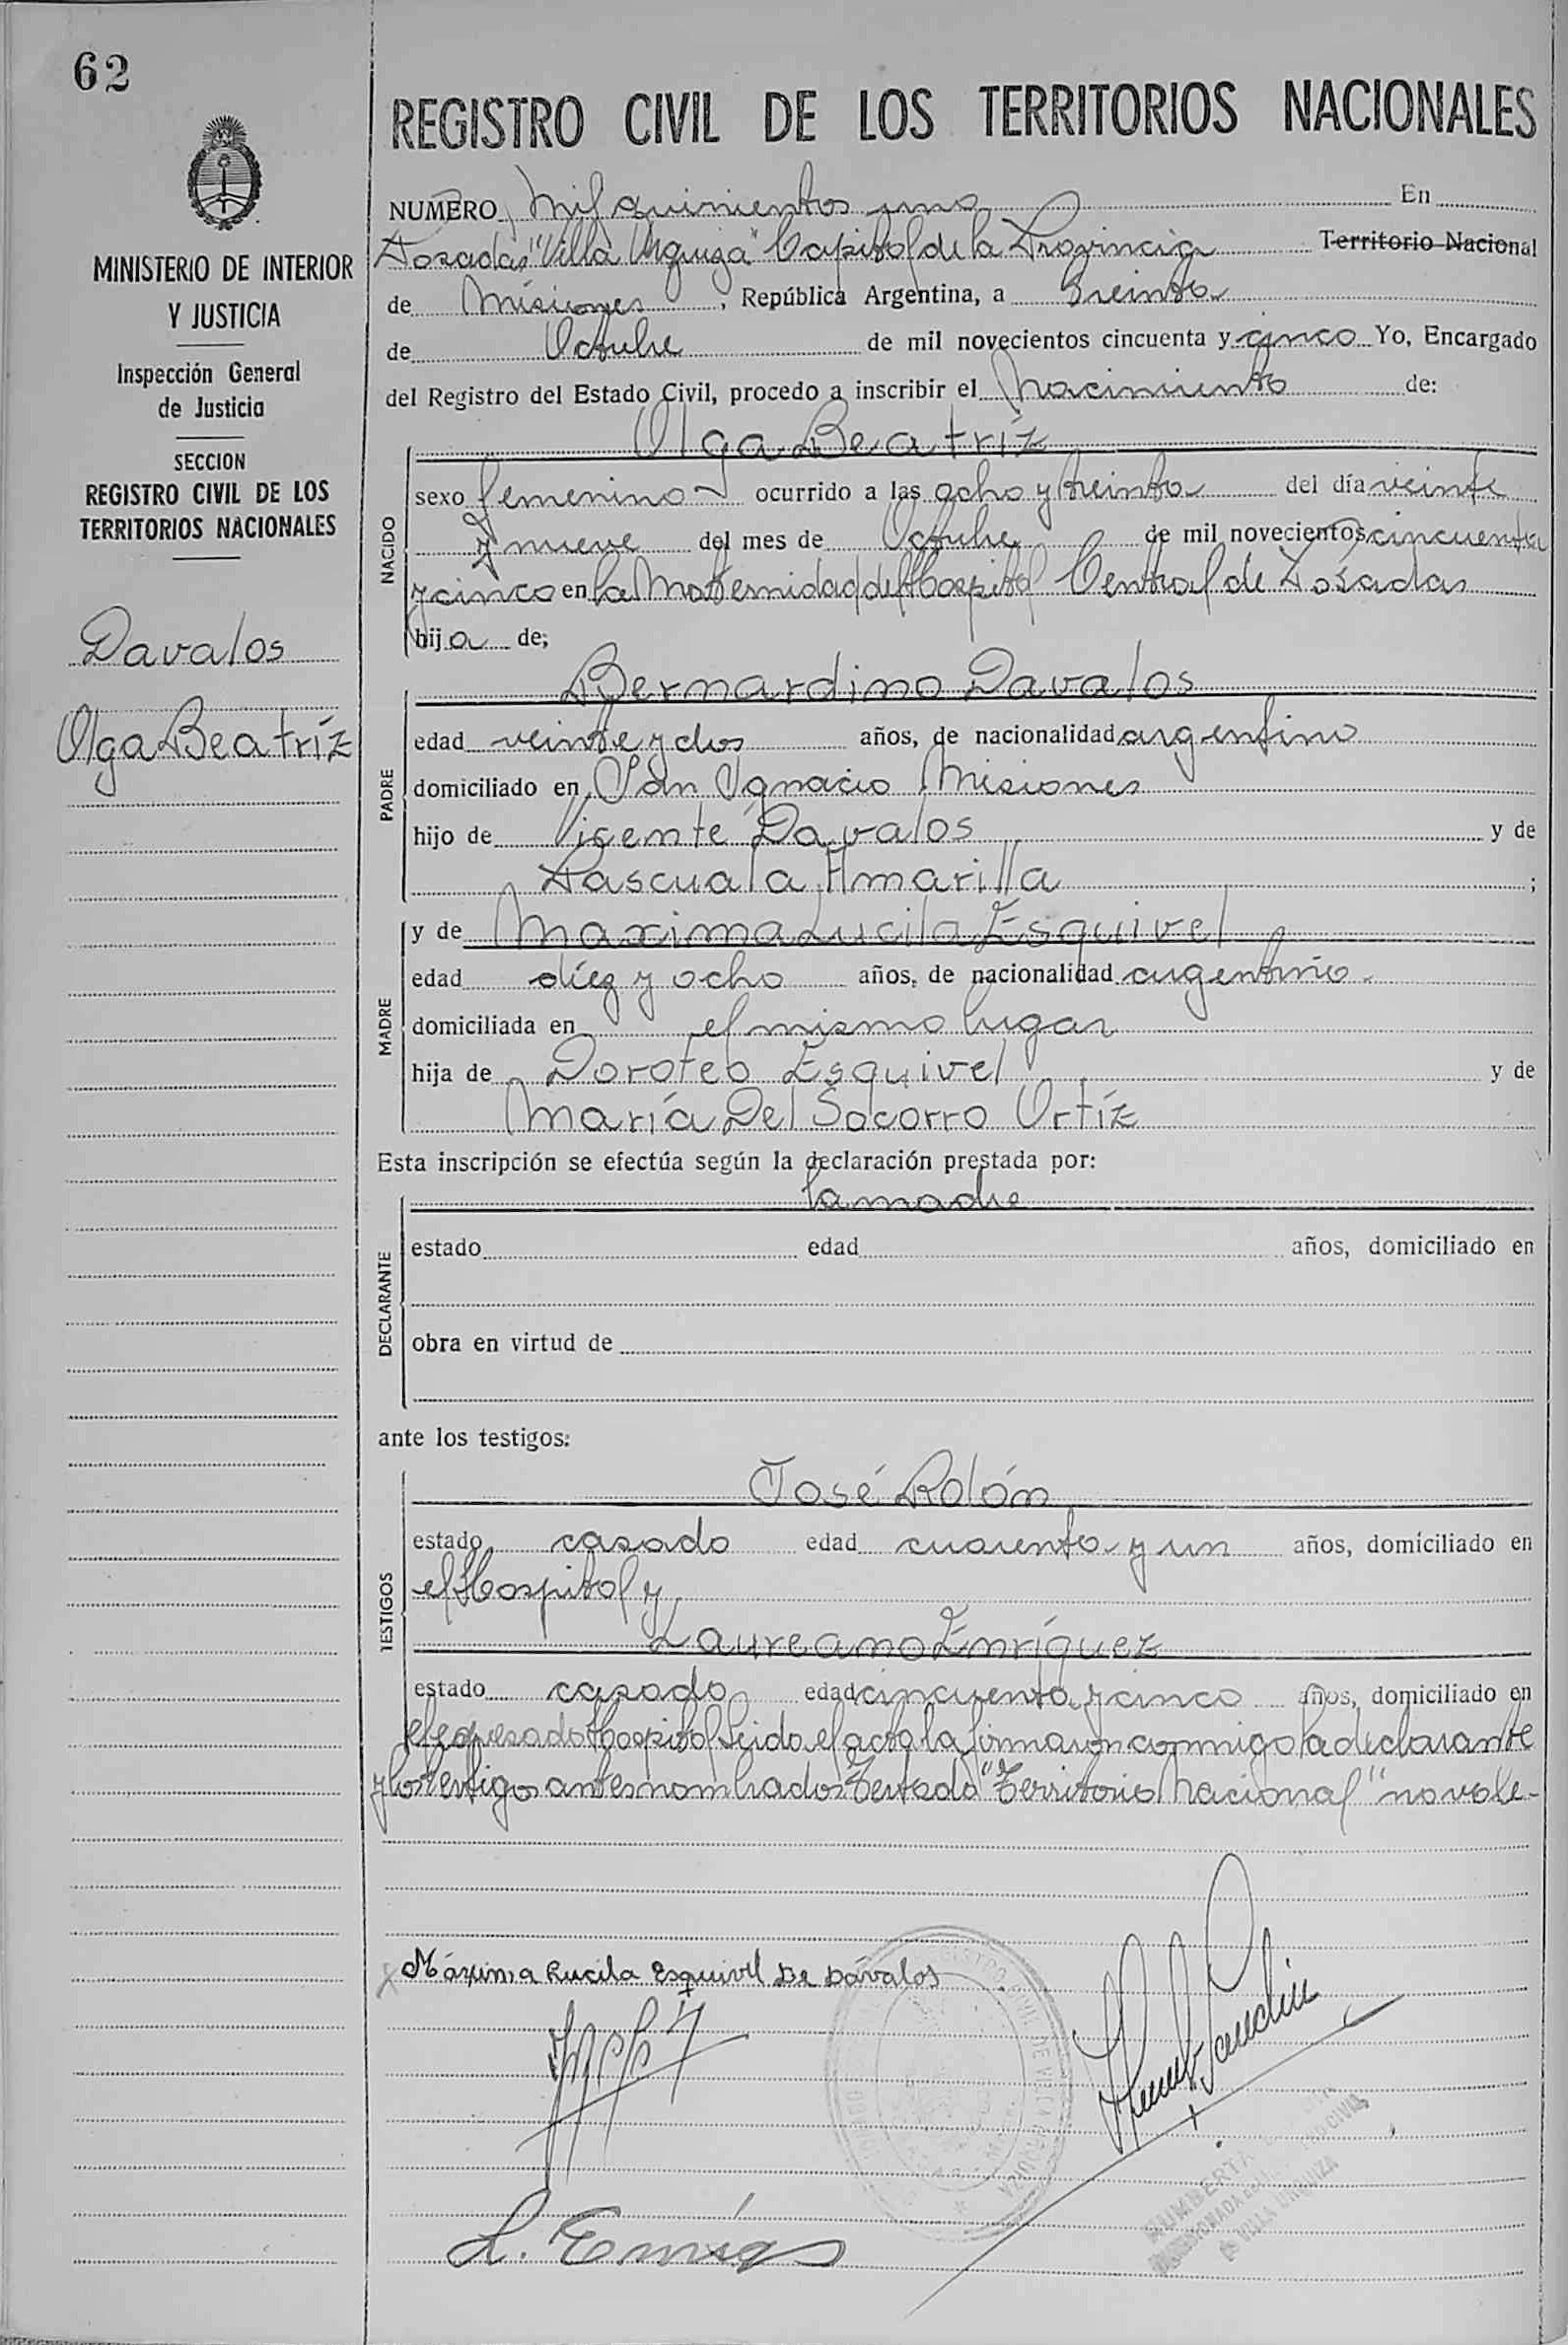 62
MINISTERIO DE INTERIOR
Y JUSTICIA
Inspección General
de Justicia
SECCION
REGISTRO CIVIL DE LOS
TERRITORIOS NACIONALES
Davalos
Olga Beatríz
REGISTRO CIVIL DE LOS TERRITORIOS NACIONALES
NUMERO Mil quinientos uno En
Posadas "Villa Urquiza" Capital de la Provincia Territorio Nacional
de Misiones, República Argentina, a treinta
de Octubre de mil novecientos cincuenta y cinco Yo, Encargado
del Registro del Estado Civil, procedo a inscribir el Nacimiento de:
Olga Beatríz
NACIDO
sexo femenino ocurrido a las ocho y treinta del día veinte
y nueve del mes de Octubre de mil novecientos cincuenta
y cinco en la Maternidad del Hospital Central de Posadas
hija de;
Bernardino Davalos
PADRE
edad veinte y dos años, de nacionalidad argentino
domiciliado en San Ignacio Misiones
hijo de Vicente Davalos y de
Pascuala Amarilla ;
y de Maxima Lucila Esquivel
MADRE
edad diez y ocho años, de nacionalidad argentino
domiciliada en el mismo lugar
hija de Doroteo Esquivel y de
María Del Socorro Ortíz
Esta inscripción se efectúa según la declaración prestada por:
la madre
DECLARANTE
estado edad años, domiciliado en
obra en virtud de
ante los testigos:
José Rolón
TESTIGOS
estado casado edad cuarenta y un años, domiciliado en
el Hospital y
Laureano Enríquez
estado casado edad cincuenta y cinco años, domiciliado en
el expresado Hospital Leido el acta la firmaron conmigo la declarante
y los testigos antes nombrados Testado "Territorio Nacional" no vale-
Máxima Lucila Esquivel De Dávalos
REGISTRO CIVIL DE VILLA URQUIZA
VILLA URQUIZA